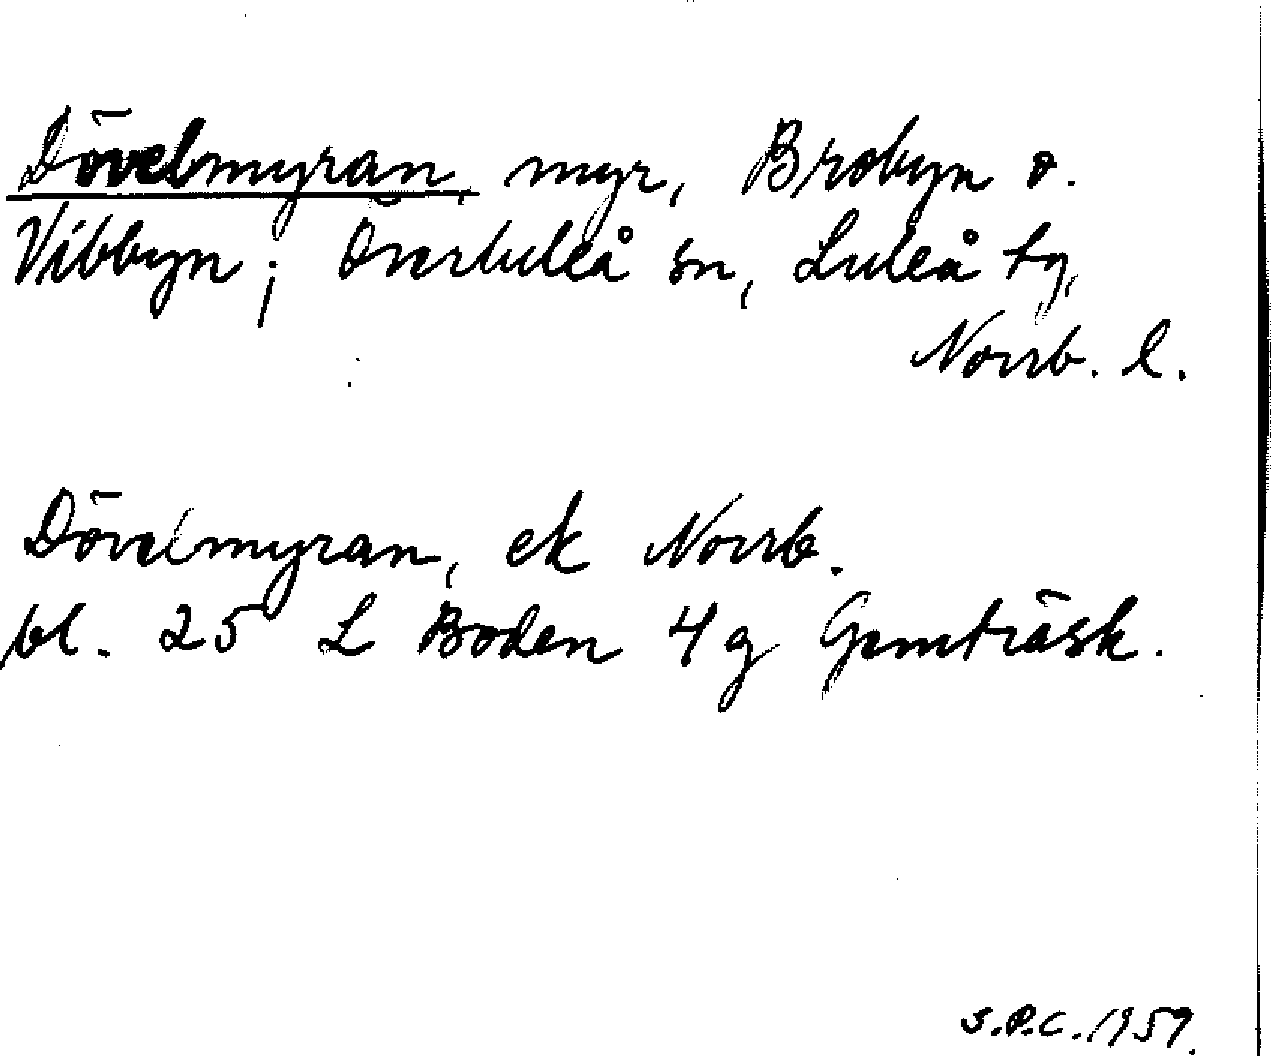 Dövelmyran, myr, Brobyn o.
Vibbyn; Överluleå sn, Luleå tg,
Norrb. l.
Dövelmyran, ek Norrb.
bl. 25 L Boden 4 g Gemträsk.
S.P.C. 1959.